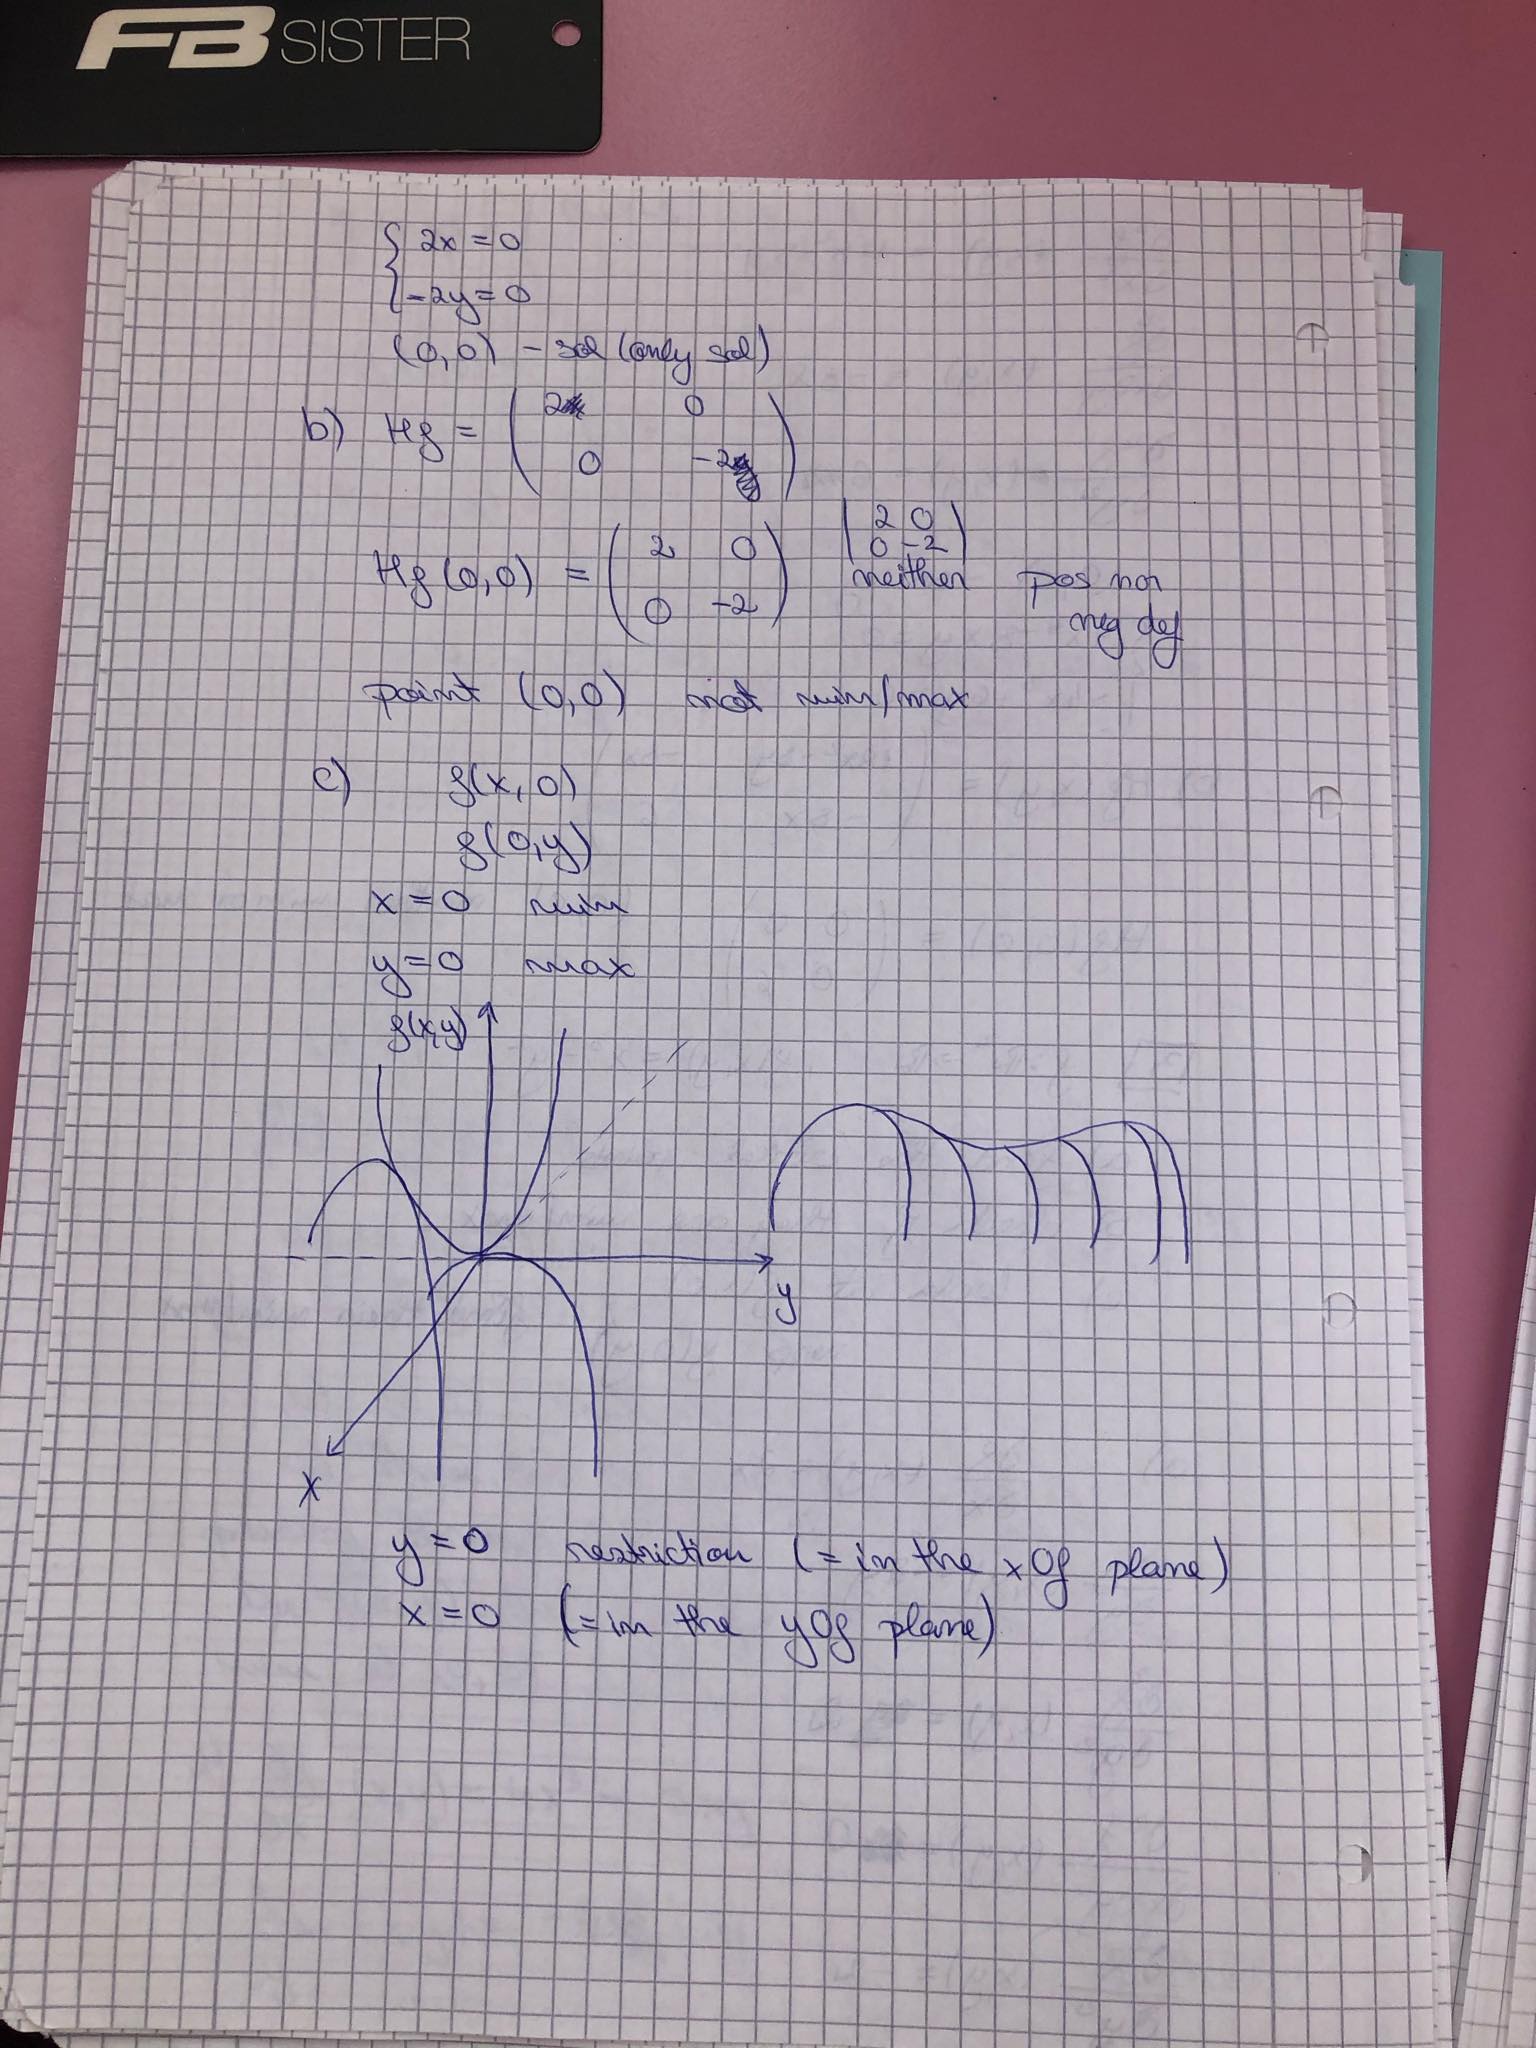 FB SISTER
{ 2x = 0
-2y = 0
(0,0) - sol (only sol)
b) Hf = ( 2 0
0 -2 )
Hf (0,0) = ( 2 0
0 -2 )
| 2 0
0 -2 |
neither pos nor
neg def
point (0,0) not min/max
c) f(x, 0)
f(0,y)
x = 0 min
y = 0 max
f(x,y)
y
x
y = 0 restriction (= in the xOf plane)
x = 0 (= in the yOf plane)